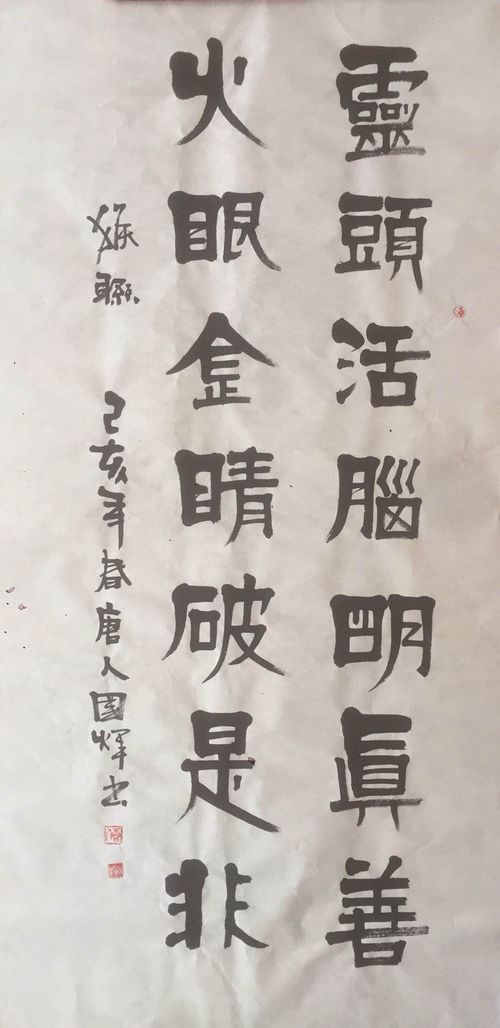 靈頭活腦明眞善
火眼金睛破是非
猴聯 己亥年春唐人國煇書